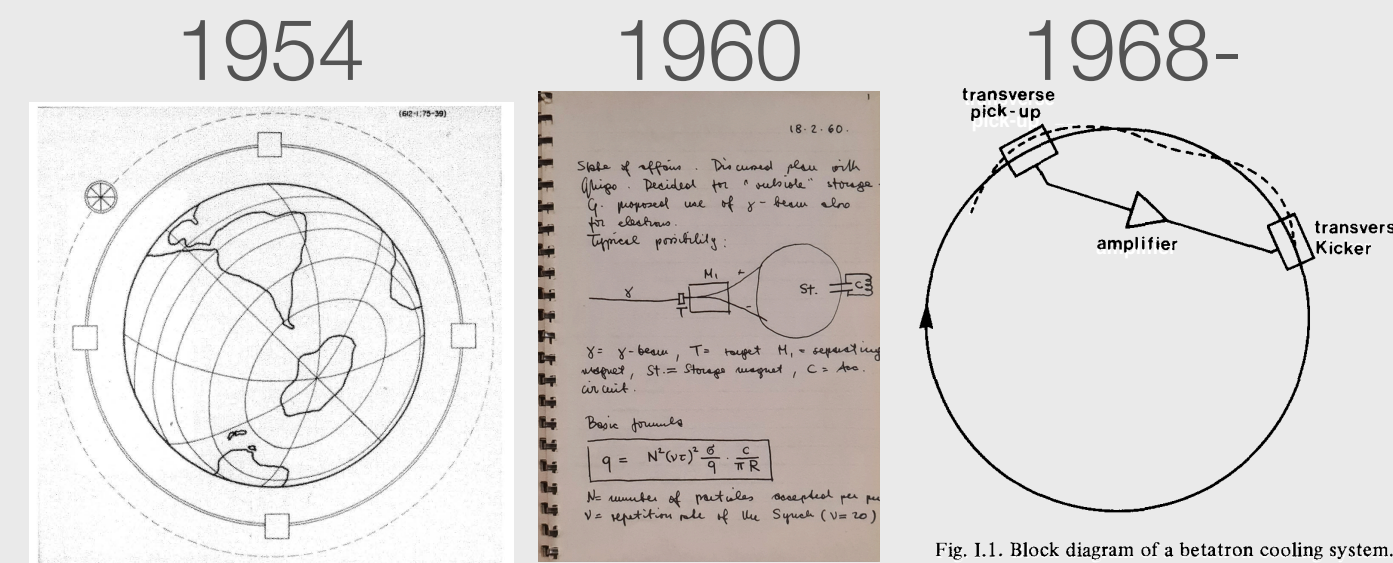 1954
1960
1968-
(612-1,75-39)
1
18.2.60.
State of affairs. Discussed plan with
Ghigo. Decided for "outside" storage
G. proposed use of γ-beam also
for electrons.
Typical possibility:
γ
T
M₁
+
-
St.
C
γ = γ-beam, T = target M₁ = separating
magnet, St. = Storage magnet, C = Acc.
circuit.
Basic formula
q = N²(ντ)² σ/q · c/πR
N = number of particles accepted per
ν = repetition rate of the Synch (ν=20)
transverse
pick-up
amplifier
transvers
Kicker
Fig. I.1. Block diagram of a betatron cooling system.